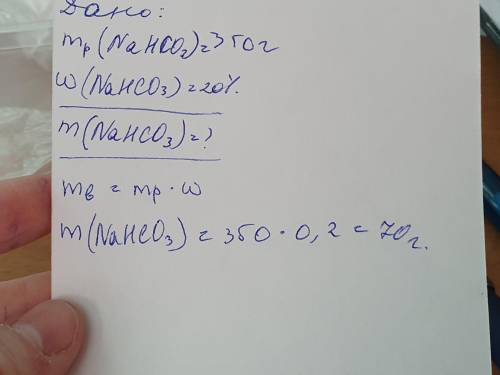 Дано:
mр(NaHCO₃)=350г
w(NaHCO₃)=20%.
m(NaHCO₃)=?
mв = mр · w
m(NaHCO₃) = 350 · 0,2 = 70г.